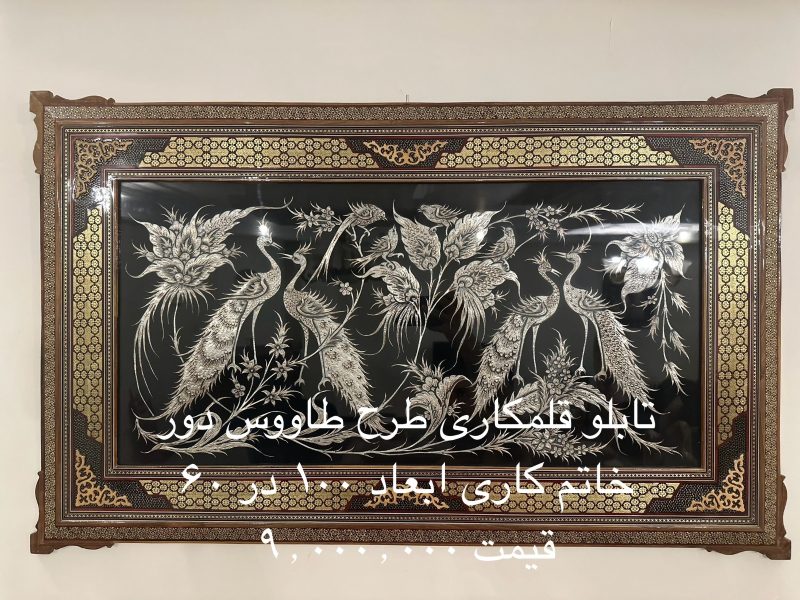 تابلو قلمکاری طرح طاووس دور
خاتم کاری ابعاد ۱۰۰ در ۶۰
قیمت ۹,۰۰۰,۰۰۰